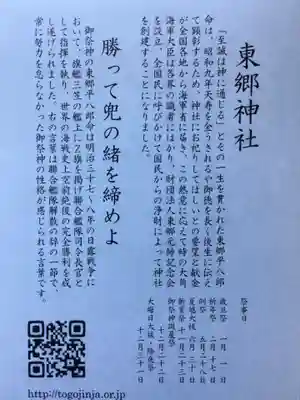 東郷神社
「至誠は神に通じる」とその一生を貫かれた東郷平八郎
命は、昭和九年天寿を全うされるや御徳を長く後生に伝え
て顕彰するため、神社にお祀りしてほしいとの要望と献金
が全国各地から海軍省に届き、この熱意に応えて時の大角
海軍大臣は各界の識者にはかり、財団法人東郷元帥記念会
を設立、全国民に呼びかけて国民からの浄財によって神社
を創建することになりました。
勝って兜の緒を締めよ
御祭神の東郷平八郎命は明治三十七〜八年の日露戦争に
おいて、旗艦三笠の艦上にZ旗を掲げ聯合艦隊司令長官と
して指揮を執り、世界の海戦史上空前絶後の完全勝利を成
し遂げられました。右の言葉は聯合艦隊解散の辞の一節で、
常に努力を怠らなかった御祭神の性格が感じられる言葉です。
祭事日
歳旦祭 一月一日
祈年祭 二月十七日
例祭 五月二十八日
夏越大祓 六月三十日
新嘗祭 十一月二十三日
御祭神誕生祭
十二月二十二日
大晦日大祓・除夜祭
十二月三十一日
http://togojinja.or.jp